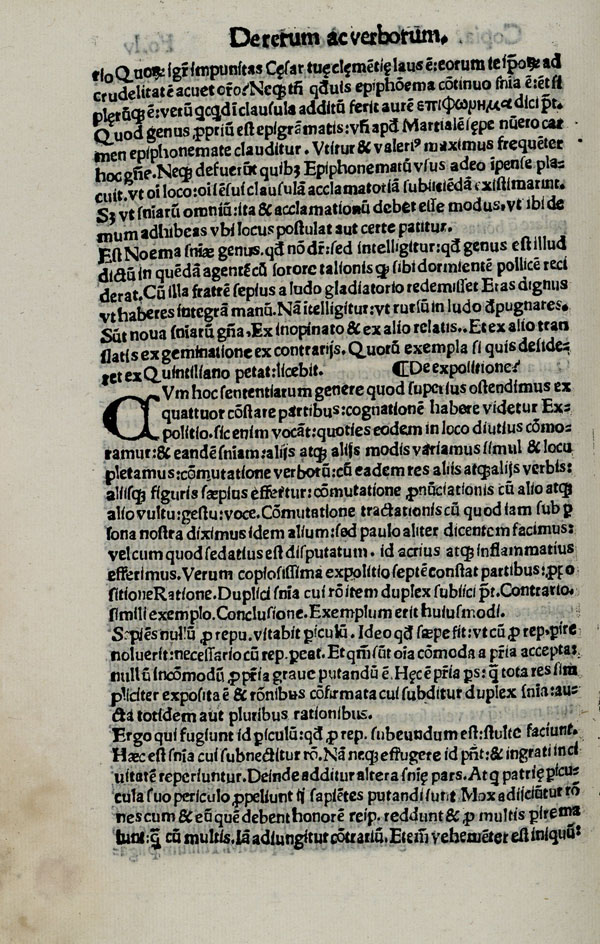 De rerum ac verborum.
tio Quoꝗ; igr̃ impunitas Cęsar tuę clemẽtię laus ẽ: eorum te ip̃oꝝ ad
crudelitatẽ acuet
Neqꝫ tñ qđuis epiphõema cõtinuo snĩa ẽ: et si
plerũqꝫ ẽ: verũ in clausula additũ ferit aurẽ επιφωρημα dici p̃t.
Quod genus ꝓpriũ est epigrãmatis: vñ apđ Martialẽ sępe nũero car
men epiphonemate clauditur. Vtitur & valeriꝰ maximus frequẽter
hoc gñe. Neqꝫ defuerũt quibꝫ Epiphonematũ vsus adeo ĩpense pla⸗
cuit. vt oĩ loco: oĩ sẽsui clausulã acclamatoriã subiiciẽdã existimarint.
Sꝫ vt sniarũ omniũ: ita & acclamationũ debet esse modus. vt ibi de
mum adhibeas vbi locus postulat aut certe patitur.
Est Noema sniæ genus. qđ nõ dr̃: sed intelligitur: qđ genus est illud
dictũ in quẽdã agentẽ cũ sorore talionis ꝗ sibi dormientẽ pollicẽ reci
derat. Cũ illa fratrẽ sepius a ludo gladiatorio redemisset Eras dignus
vt haberes integrã manũ. Nã ĩtelligitur: vt rursũ in ludo đpugnares.
Sũt noua sniarũ gñа, Ex inopinato & ex alio relatis.. Et ex alio tran
slatis ex geminatione ex contrarijs. Quorũ exempla si quis deside⸗
ret ex Quintiliano petat: licebit. ¶De expositione?
CVm hoc sententiarum genere quod superius ostendimus ex
quattuor cõstare partibus: cognationẽ habere videtur Ex⸗
politio. sic enim vocãt: quoties eodem in loco diutius cõmo⸗
ramur: & eandẽ sniam: alijs atqꝫ alijs modis variamus simul & locu
pletamus: cõmutatione verborũ: cũ eadem res aliis atqꝫ alijs verbis:
aliisqꝫ figuris sæpius effertur: cõmutatione ꝓnũciationis cũ alio atqꝫ
alio vultu: gestu: voce. Cõmutatione tractationis cũ quod iam sub p̱
sona nostra diximus idem alium: sed paulo aliter dicentem facimus:
vel cum quod sedatius est disputatum. id acrius atqꝫ inflammatius
efferimus. Verum copiosissima expolitio septẽ constat partibus: ꝓpo
sitione Ratione. Duplici snĩa cui rõ item duplex subiici p̃t. Contrario.
simili exemplo. Conclusione. Exemplum erit huiusmodi.
Sapiẽs nullũ ꝓ repu. vitabit piculũ. Ideo qđ sæpe fit: vt cũ ꝓ rep. pire
noluerit: necessario cũ rep. peat. Et qm̃ sũt oĩa cõmoda a p̃ria accepta:
nullũ incõmodũ ꝓ p̃pria graue putandũ ẽ. Hęc ẽ p̃ria ps: ꝗ̃ tota res sim
pliciter exposita ẽ & rõnibus cõfirmata cui subditur duplex snĩa: au⸗
cta totidem aut pluribus rationibus.
Ergo qui fugiunt id piculũ: qđ ꝓ rep. subeundum est: stulte faciunt.
Hæc est snĩa cui subnectitur rõ. Nã neqꝫ effugere id pñt: & ingrati in ci
uitatẽ reperiuntur. Deinde additur altera snię pars. Atꝗ patrię picu⸗
cula suo periculo ꝓpellunt ij sapiẽtes putandi sunt Mox adijciũtur rõ
nes cum & eũ quẽ debent honorẽ reip. reddunt & ꝓ multis pire ma
lunt: ꝗ̃ cũ multis. Iã adiungitur cõtrariũ. Eteñm vehemẽter est iniquũ: